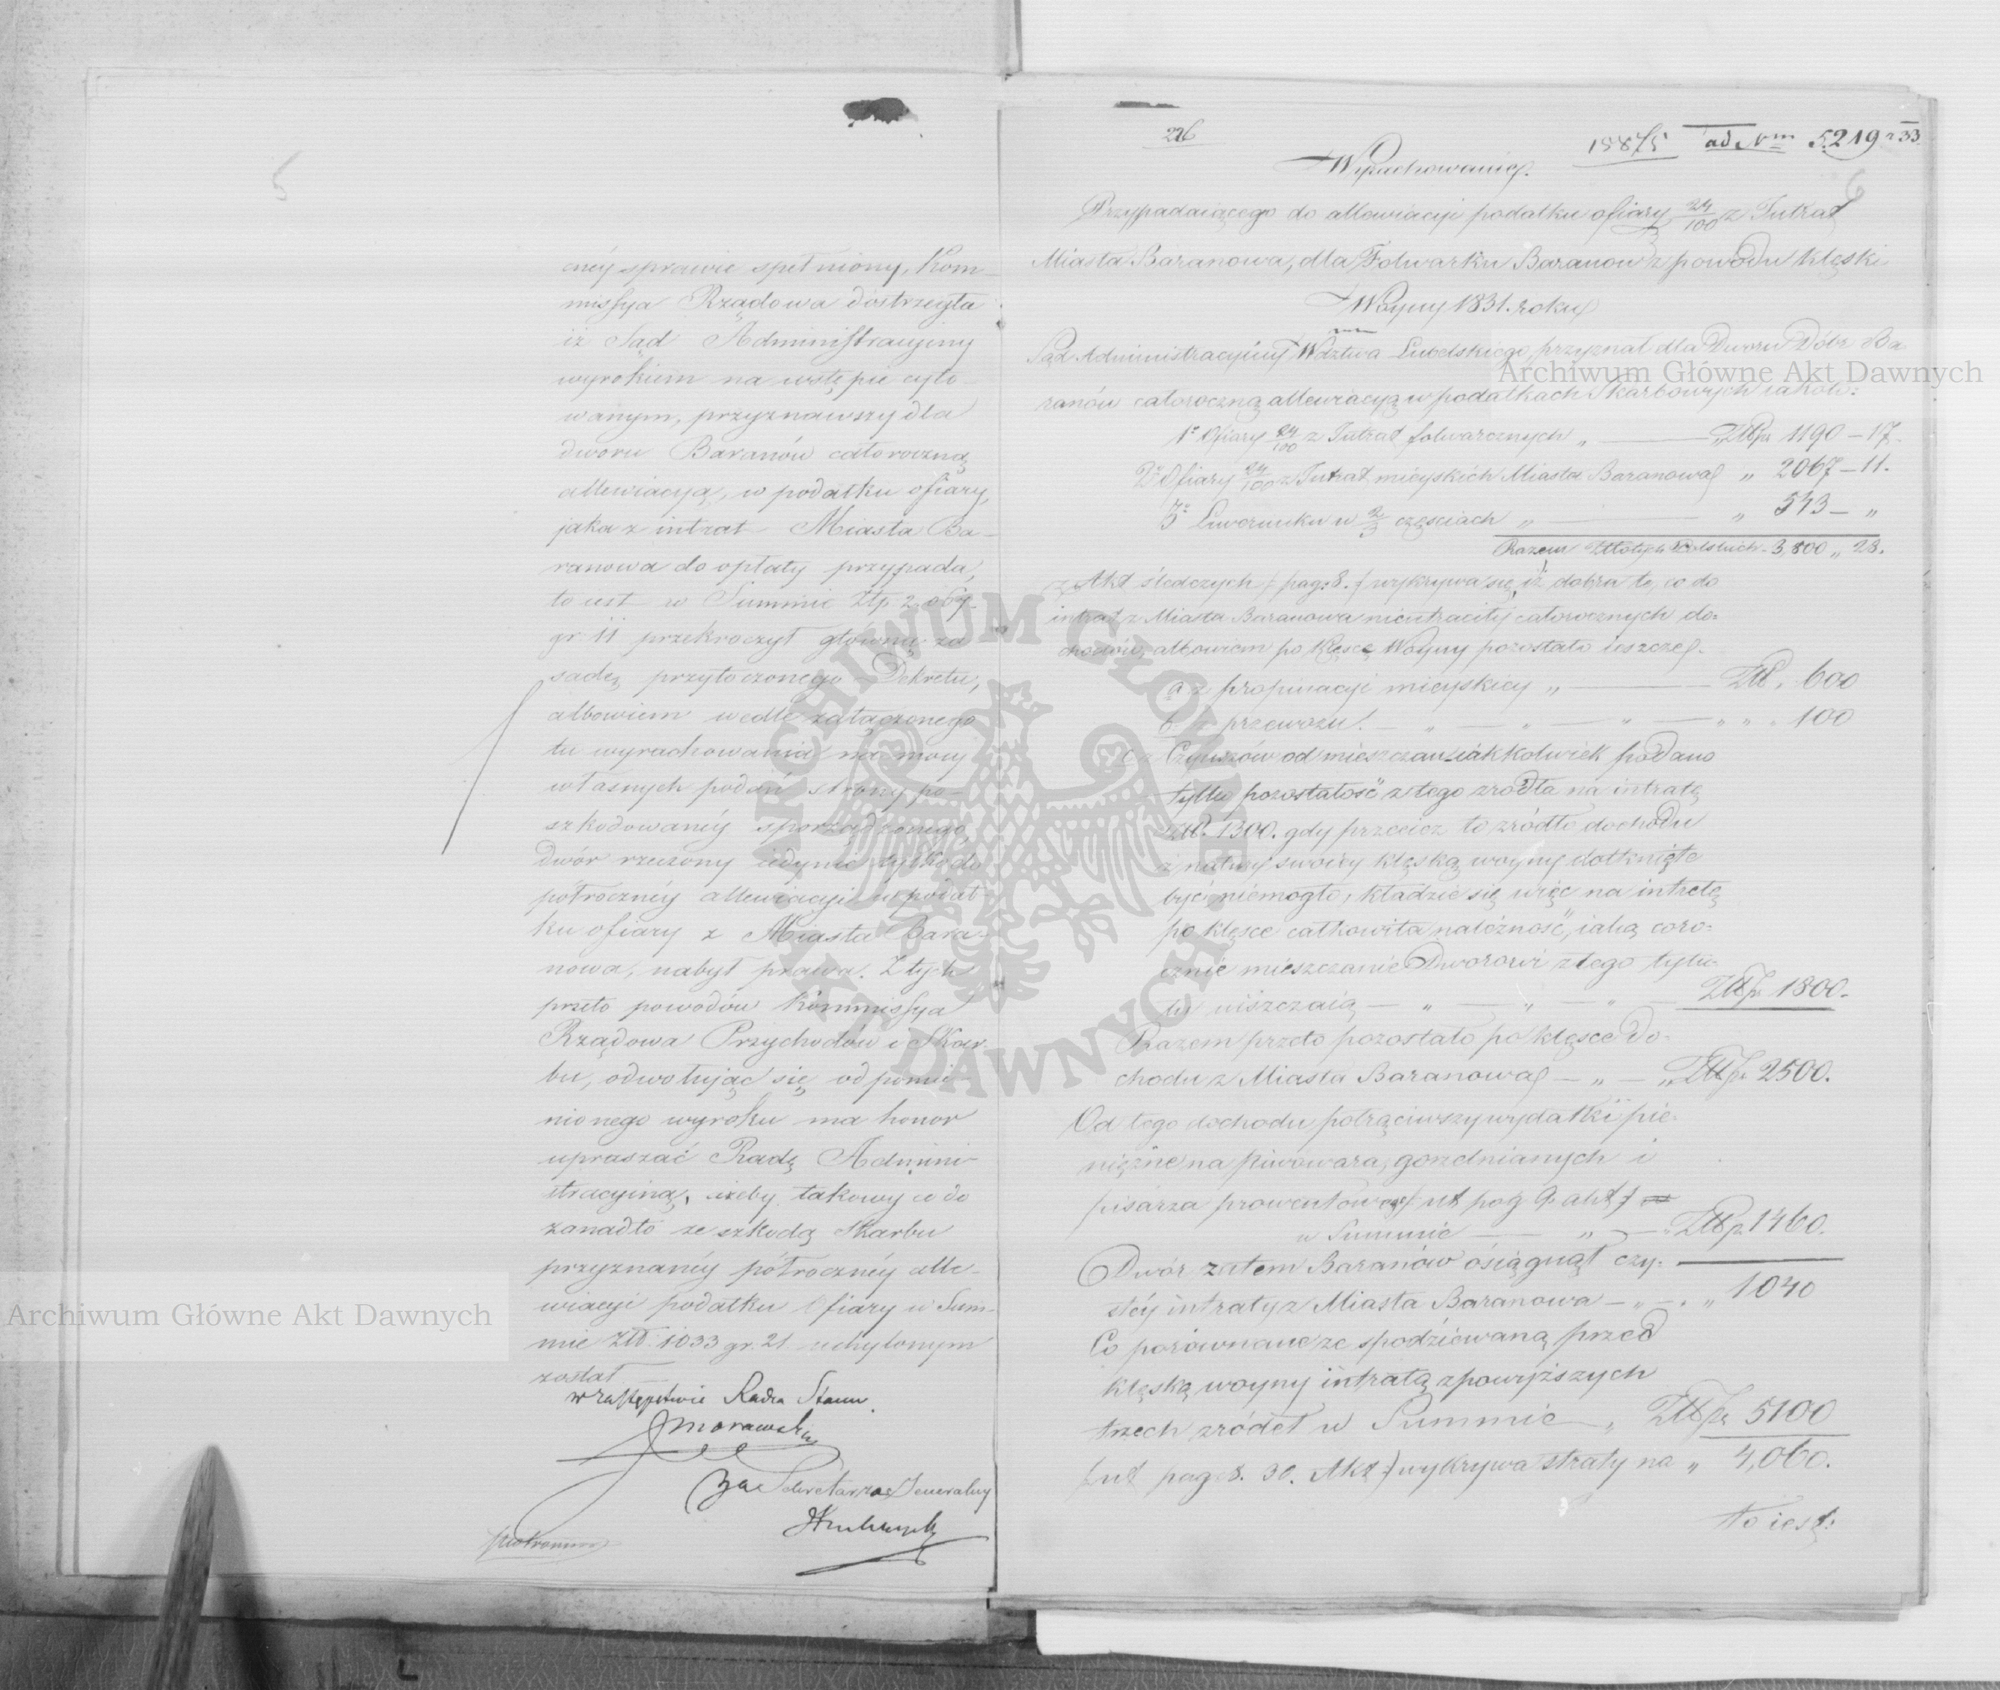 5
cnéy sprawie spełniony, Kom-
missya Rządowa dostrzegła
iż Sąd Administracyiny
wyrokiem na wstępie cyto-
wanym, przyznawszy dla
dworu Baranów całoroczną
allewiacyą, w podatku ofiary,
jaka z intrat Miasta Ba-
ranowa do opłaty przypada,
to iest w Summie Złp. 2,067
gr. 11 przekroczył główną za-
sadę przytoczonego Dekretu,
albowiem wedle załączonego
tu wyrachowania na mocy
własnych podań strony po-
szkodowanéy sporządzonego,
Dwór rzeczony iedynie tylko do
półrocznéy allewiacyi w podat-
ku ofiary z Miasta Bara-
nowa, nabył prawa. Z tych
przeto powodów Kommissya
Rządowa Przychodów i Skar-
bu, odwołując się od pomie-
nionego wyroku ma honor
upraszać Radę Admini-
stracyiną, iżeby takowy co do
zanadto ze szkodą Skarbu
przyznanéy półrocznéy alle-
wiacyi podatku Ofiary w Sum-
mie Złł. 1033 gr. 21 uchylonym
został
w zastępstwie Radca Stanu
Morawski
Za Sekretarza Jeneralny
226
15875 ad Nrm 5219 r 33
6
Wyrachowanie.
Przypadaiącego do allewiacyi podatku ofiary 24/100 z Intrat
Miasta Baranowa, dla Folwarku Baranow z powodu klęski
Woyny 1831. roku
Sąd Administracyiny Wdztwa Lubelskiego przyznał dla Dworu Dóbr Ba
ranów całoroczną allewiacyą w podatkach Skarbowych iakoto:
1o Ofiary 24/100 z Intrat folwarcznych „ — Złłp. 1190 – 17.
2o Ofiary 24/100 z Intrat mieyskich Miasta Baranowa „ 2067 – 11.
3o Liwerunku w 2/3 częsciach „ — „ 543 – „
Razem Złotych Polskich 3,800 „ 28.
z Akt śledczych / pag. 8. / wykrywa się, iż dobra te, co do
intrat z Miasta Baranowa nieutraciły całorocznych do-
chodów, albowiem po klęsce Woyny pozostało ieszcze.
a z propinacyi mieyskiey „ — Złł. 600
b z przewozu. — „ — „ — „ — „ 100
c z Czynszów od mieszczan iakkolwiek podano
tylko pozostałość z tego zrodła na intratę
Złł. 1300. gdy przecież to zródło dochodu
z natury swoiéy klęską woyny dotknięte
być niemogło, kładzie się więc na intratę
po klęsce całkowita należność, iaką coro-
cznie mieszczanie Dworowi z tego tytu-
łu uiszczaią — „ — „ — „ — Złłp. 1800.
Razem przeto pozostało po klęsce Do-
chodu z Miasta Baranowa — „ — „ Złłp. 2500.
Od tego dochodu potrąciwszy wydatki pie-
niężne na piwowara, gorzelnianych i
pisarza prowentowego / ut pag 9 akt /
w Summie — „ — Złłp. 1460.
Dwór zatem Baranów osiągnął czy-
stéy intraty z Miasta Baranowa — „ — „ 1040
Co porównane ze spodziewaną przed
klęską woyny intratą z powyższych
trzech zródeł w Summie — „ Złłp. 5100
/ ut pag. 8. 30. Akt / wykrywa straty na „ 4,060.
to iest:
Archiwum Główne Akt Dawnych
Archiwum Główne Akt Dawnych
ARCHIWUM GŁÓWNE
AKT DAWNYCH